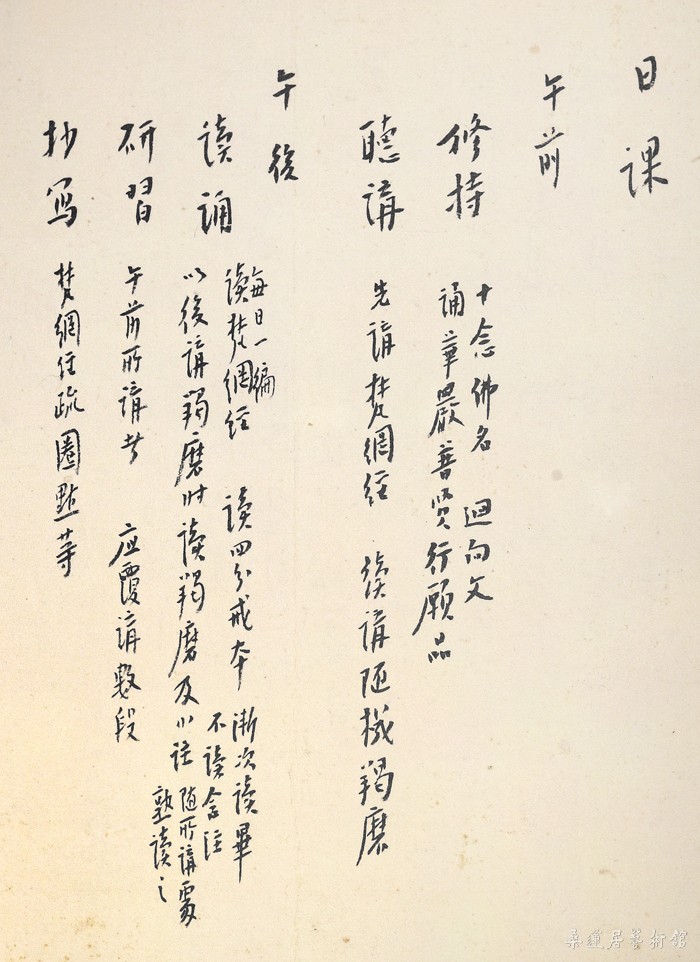 日課
午前
修持 十念佛名 迴向文
誦華嚴普賢行願品
聽講 先講梵網經 後講隨機羯磨
午後
讀誦 每日一編
讀梵網經 讀四分戒本 漸次讀畢
不讀含注
以後講羯磨时讀羯磨及小註 随所講處
熟讀之
研習 午前所講者 应覆講數段
抄写 梵網經疏圈點等
華蓮居藝術館